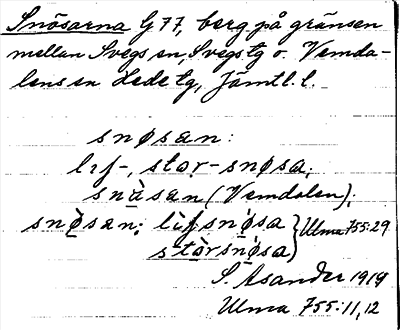 Snösarna G 77, berg på gränsen
mellan Svegs sn, Svegs tg o. Vemda-
lens sn Hede tg, Jämtl. l.
snøsan:
lɪf-, stor-snøsa;
snàsan (Vemdalen);
snø̀san; lìfsnø̀sa } Ulma 755:29
stòrsnø̀sa)
S. Asander 1919
Ulma 755:11,12